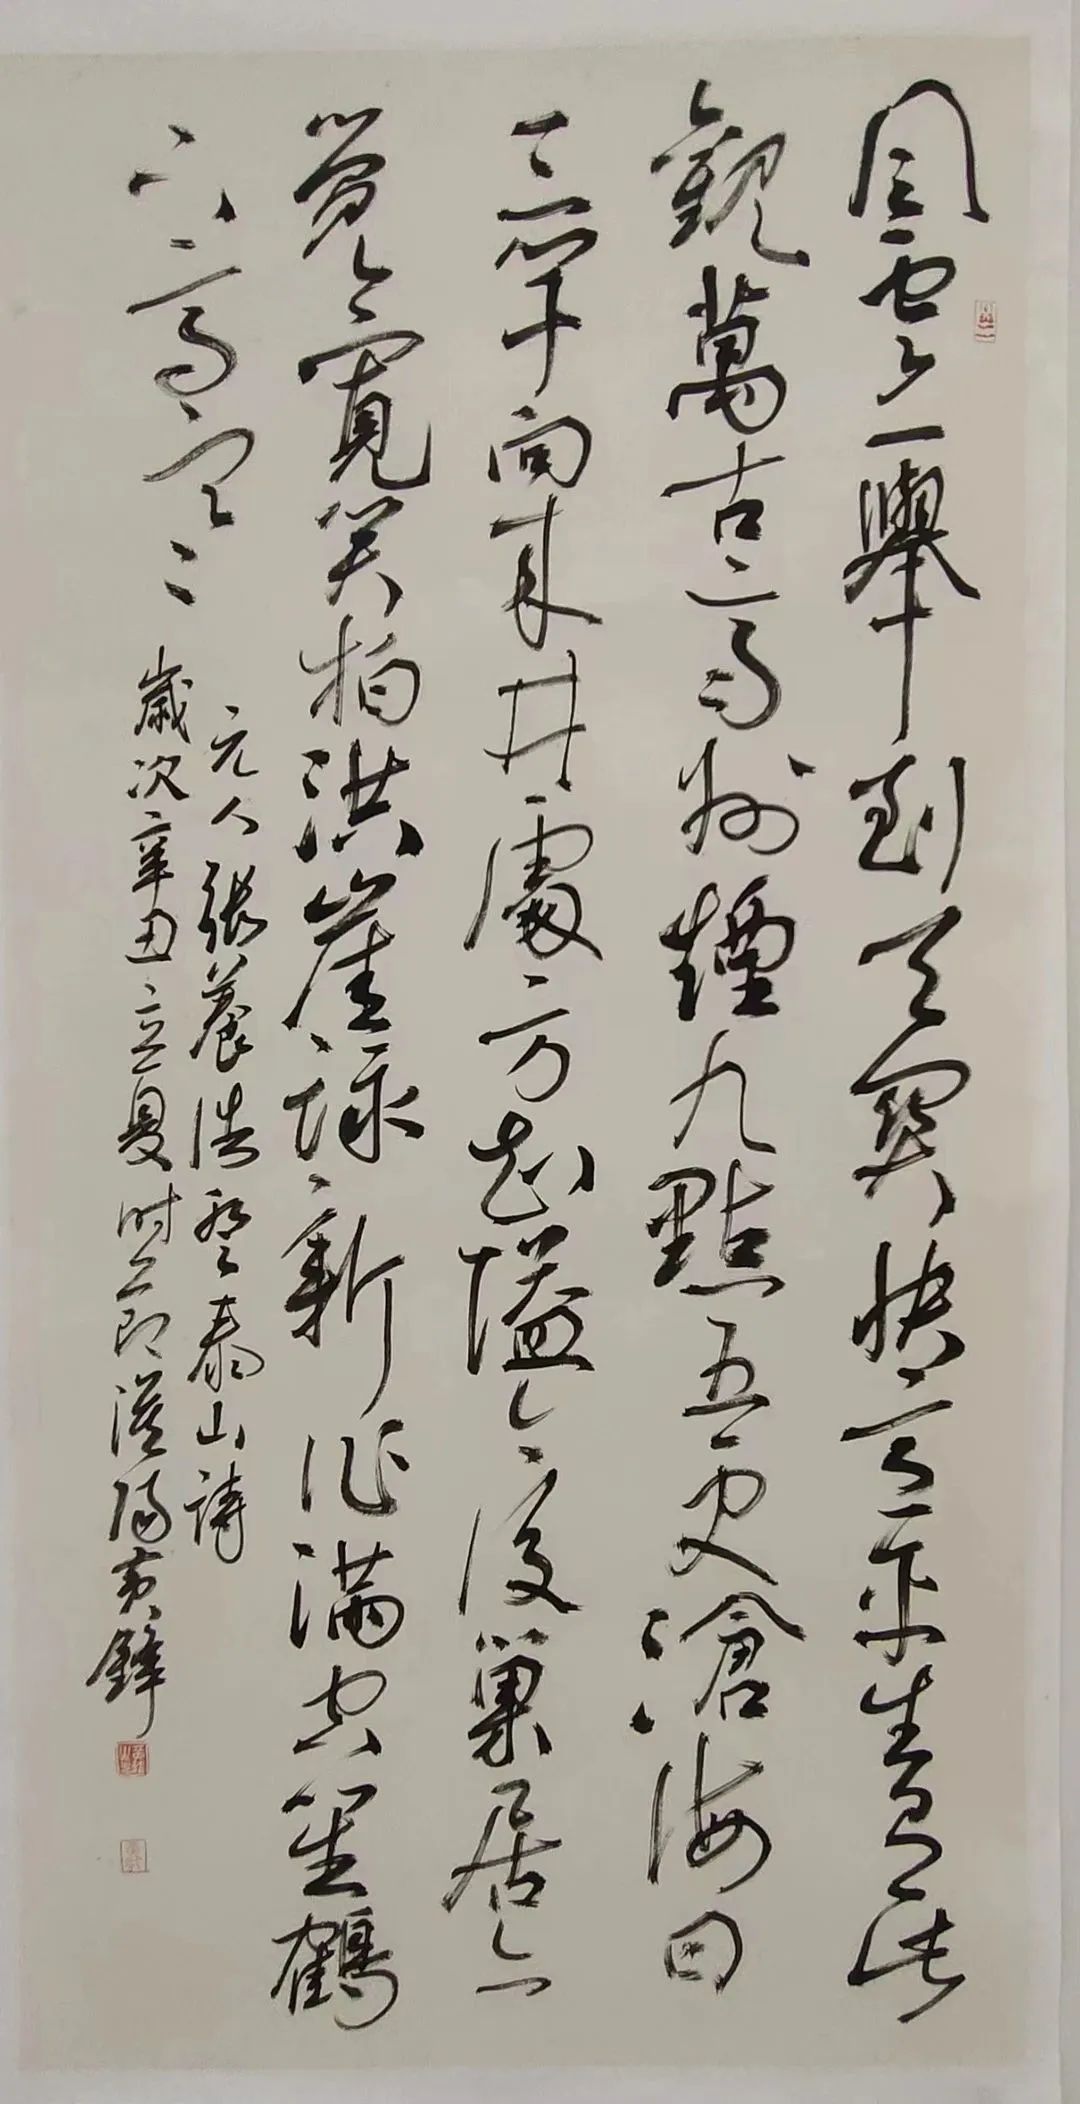 風雲一舉到天關快意平生有此
觀萬古齊州煙九點五更滄海日
三竿向來井處方知隘今後巢居亦
覺寬笑拍洪崖詠新作滿空笙鶴
下高寒
元人張養浩登泰山詩
歲次辛丑立夏时節漢陽黃鋒